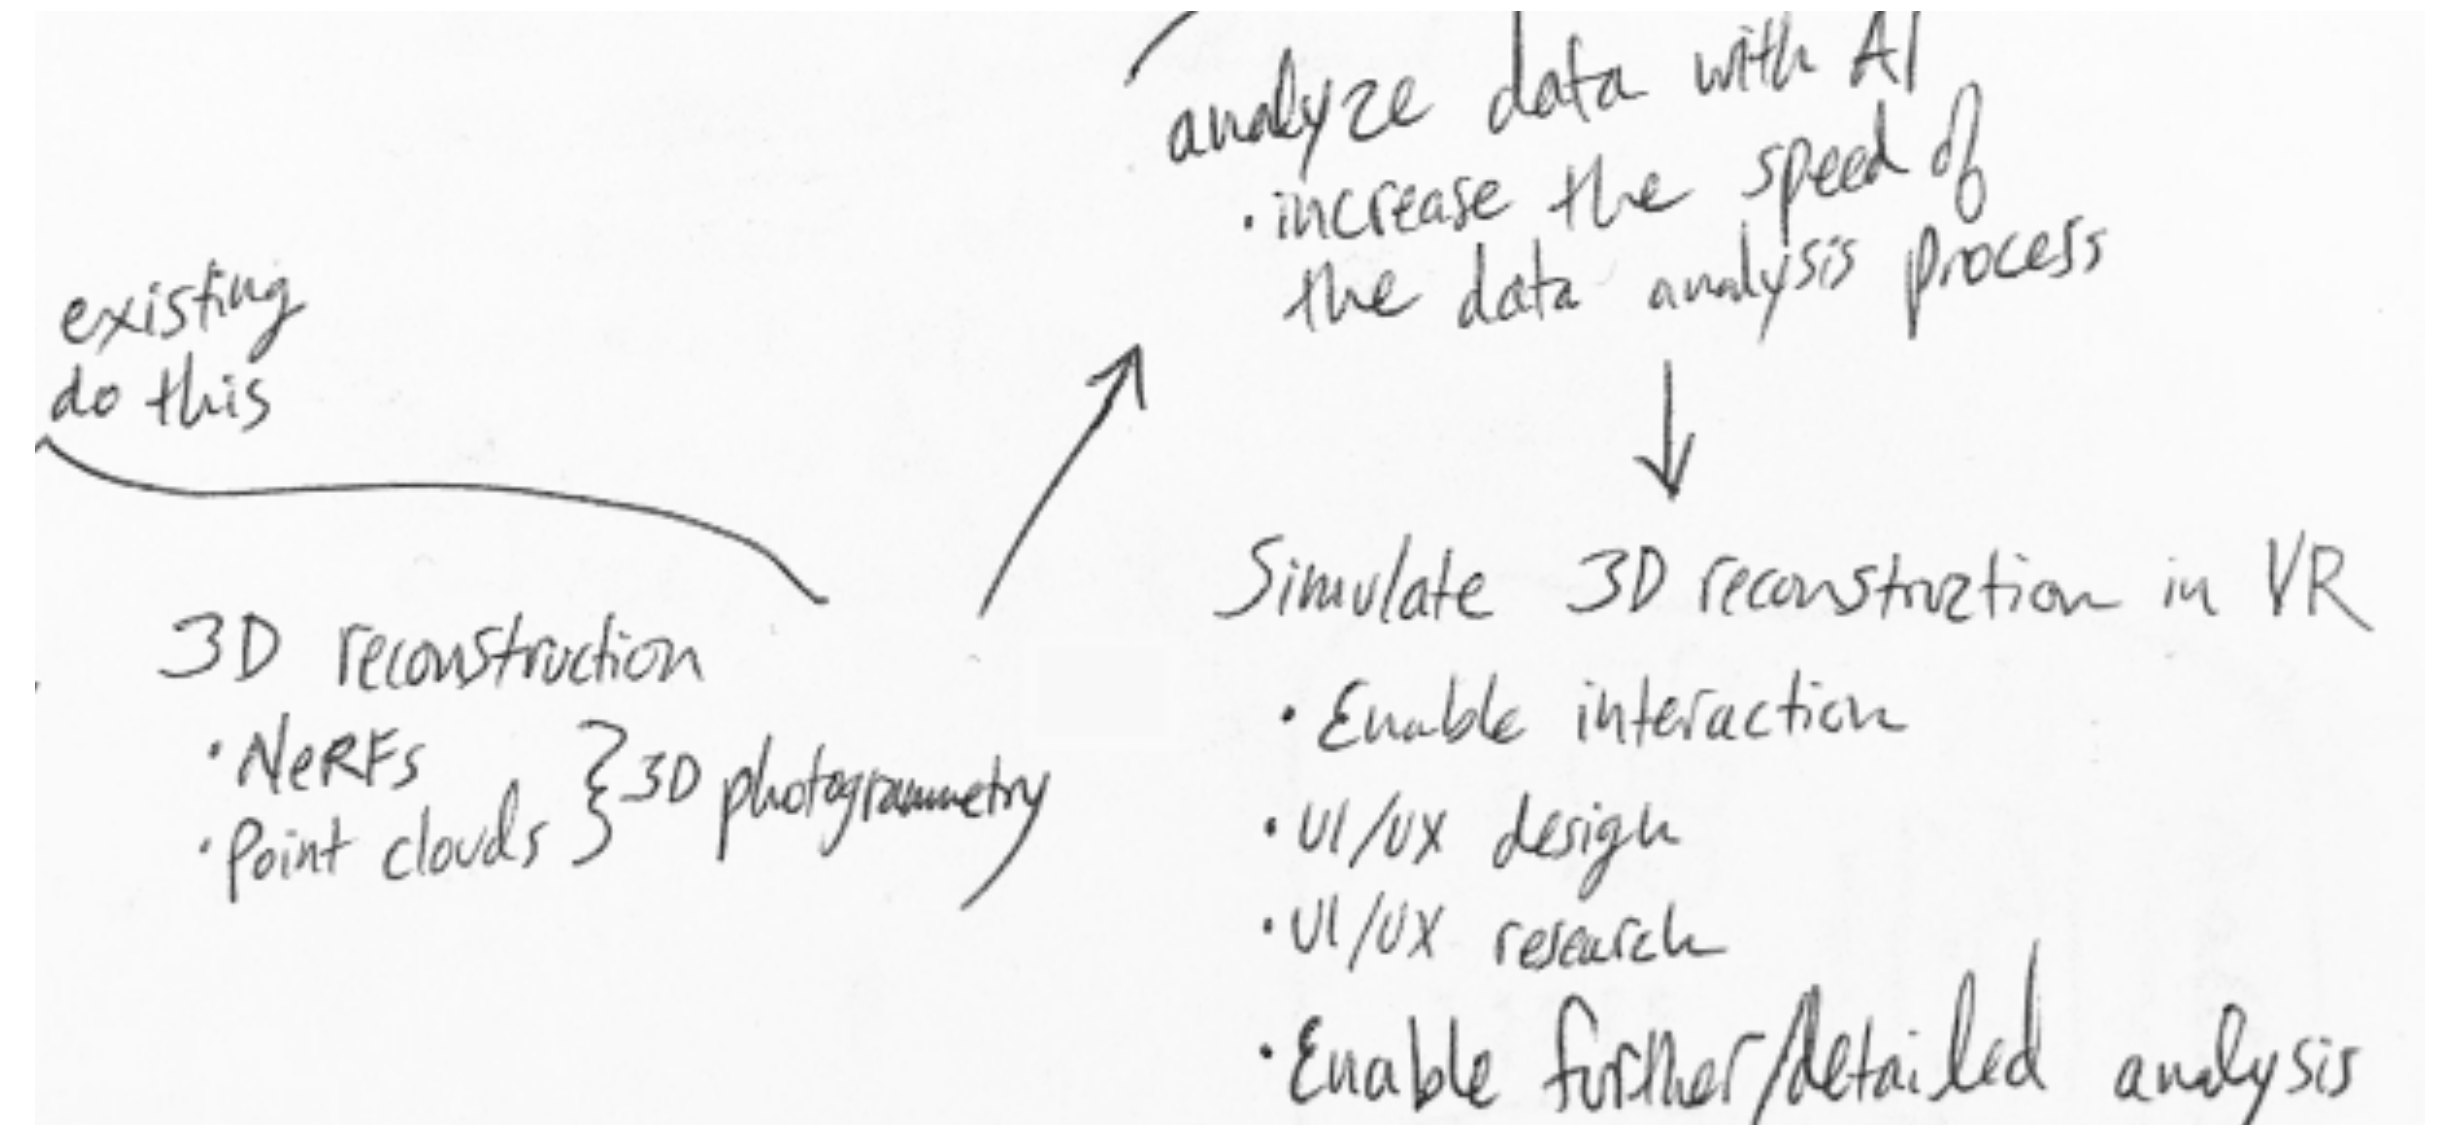 existing
do this
3D reconstruction
· NeRFs
· Point clouds
3D photogrammetry
analyze data with AI
· increase the speed of
the data analysis process
Simulate 3D reconstruction in VR
· Enable interaction
· UI/UX design
· UI/UX research
· Enable further/detailed analysis